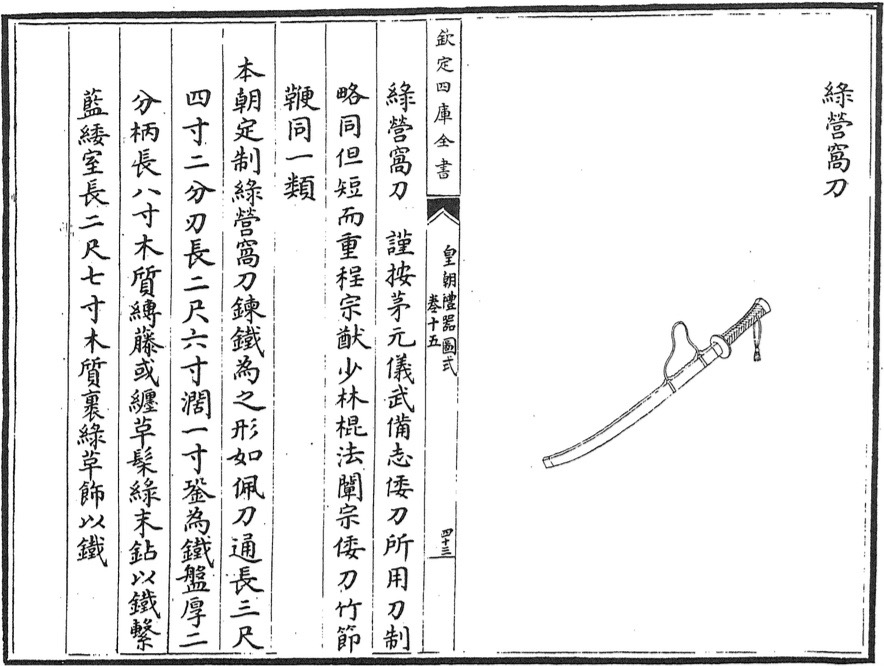 綠營窩刀
欽定四庫全書
皇朝禮器圖式
卷十五
四十三
綠營窩刀 謹按茅元儀武備志倭刀所用刀制
略同但短而重程宗猷少林棍法闡宗倭刀竹節
鞭同一類
本朝定制綠營窩刀鍊鐵為之形如佩刀通長三尺
四寸二分刃長二尺六寸濶一寸銎為鐵盤厚二
分柄長八寸木質縛藤或纒草髹綠末鉆以鐵繫
藍緌室長二尺七寸木質裹綠草飾以鐵